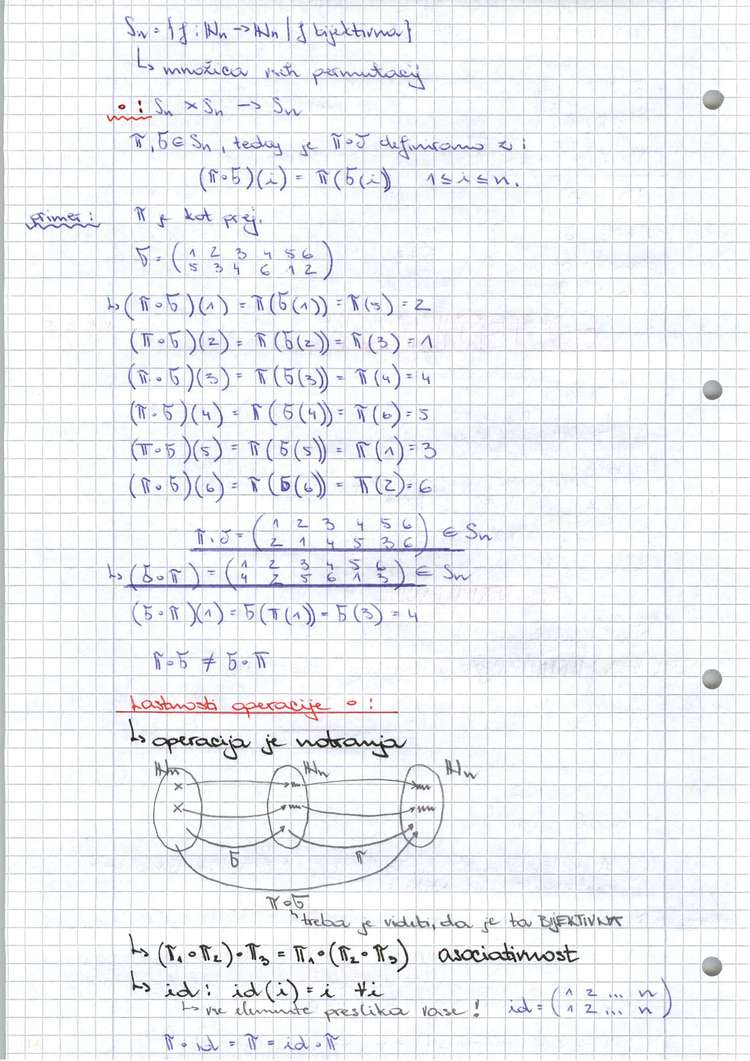 Sₙ = { f : ℕₙ → ℕₙ | f bijektivna }
↳ množica vseh permutacij
∘ : Sₙ × Sₙ → Sₙ
π, σ ∈ Sₙ, tedaj je π∘σ definiramo z:
(π∘σ)(i) = π(σ(i)) 1 ≤ i ≤ n.
primer: π je kot prej.
σ = ( 1 2 3 4 5 6
5 3 4 6 1 2 )
↳ (π∘σ)(1) = π(σ(1)) = π(5) = 2
(π∘σ)(2) = π(σ(2)) = π(3) = 1
(π∘σ)(3) = π(σ(3)) = π(4) = 4
(π∘σ)(4) = π(σ(4)) = π(6) = 5
(π∘σ)(5) = π(σ(5)) = π(1) = 3
(π∘σ)(6) = π(σ(6)) = π(2) = 6
π∘σ = ( 1 2 3 4 5 6
2 1 4 5 3 6 ) ∈ Sₙ
↳ (σ∘π) = ( 1 2 3 4 5 6
4 2 5 6 1 3 ) ∈ Sₙ
(σ∘π)(1) = σ(π(1)) = σ(3) = 4
π∘σ ≠ σ∘π
Lastnosti operacije ∘ :
↳ operacija je notranja
ℕₙ ℕₙ ℕₙ
σ π
π∘σ
↳ treba je videti, da je ta BIJEKTIVNA
↳ (π₁∘π₂)∘π₃ = π₁∘(π₂∘π₃) asociativnost
↳ id : id(i) = i ∀i
↳ vse elemente preslika vase! id = ( 1 2 ... n
1 2 ... n )
π∘id = π = id∘π